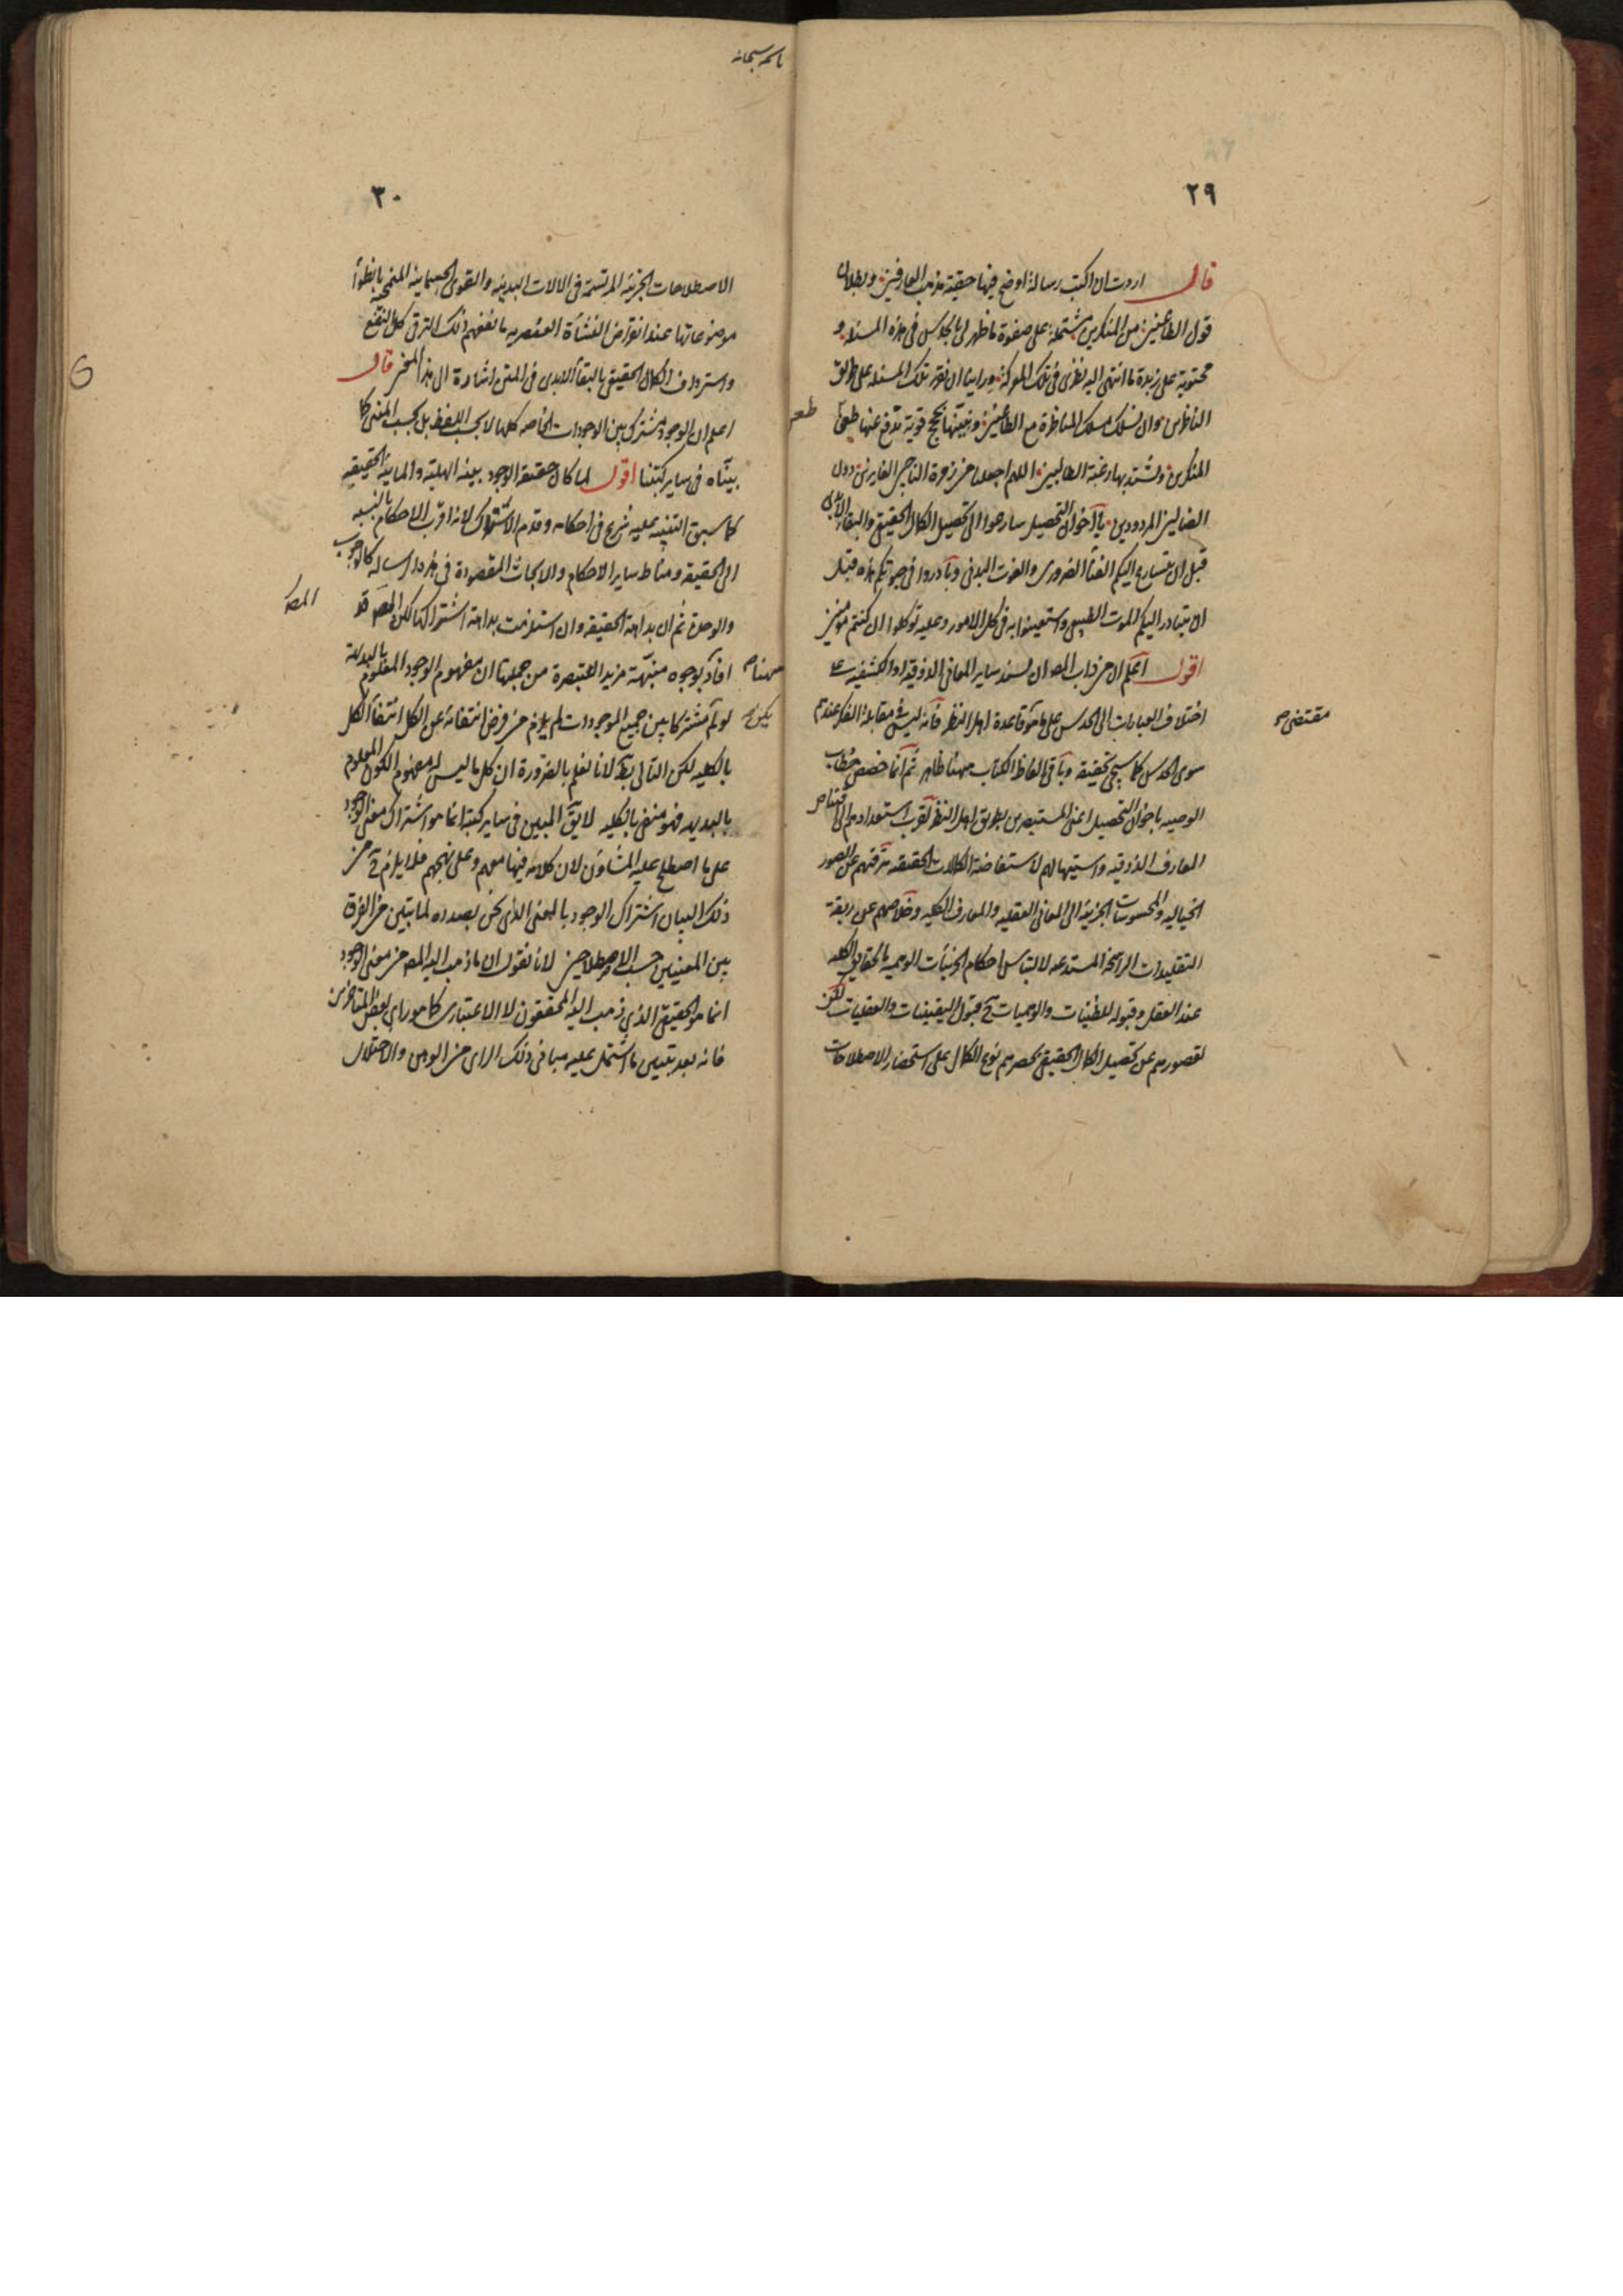 ٢٩
قال اردت ان اكتب رسالة اوضح فيها حقيقة مذهب العارفين وبطلان
قول الطاعنين من المنكرين مشتملة على صفوة ما ظهر لى بالحدس فى هذه المسئلة و
محتوية على زبدة ما انتهى اليه نظرى فى تلك المعركة ورايت ان نقرر تلك المسئلة على طرائق
الناظرين وان نسلك مسلك المناظرة مع الطاعنين ونبينها بحجج قوية تدفع عنها طعن
طعن
المنكرين وتشتد بها رغبة الطالبين اللهم اجعلنا من زمرة الناجين الفايزين دون
الضالين المردودين يا اخوان التحصيل سارعوا الى تحصيل الكمال الحقيقى والبقاء الابدى
قبل ان يتسارع اليكم الفنأ الضرورى والفوت البدنى وبادروا فى حيوتكم هذه قبل
ان يتبادر اليكم الموت الطبيعى واستعينوا به فى كل الامور وعليه توكلوا ان كنتم مؤمنين
اقول اعلم ان من داب المصـ ان يسند ساير المعانى الذوقية او الكشفية على
اختلاف العبارات الى الحدس على ما هو قاعدة اهل النظر فانه ليس فى مقابلة الفكر عندهم
مقتضى صح
سوى الحدس كما سيجئ تحقيقه وباقى الفاظ الكتاب ههنا ظاهر ثم انما خصص خطاب
الوصيه باخوان التحصيل اعنى المستبصرين بطريق اهل النظر لقرب استعدادهم الى اقتناص
المعارف الذوقيه واستيهالهم لاستفاضة الكمالات الحقيقيه بترقيهم عن الصور
الخياليه والمحسوسات الجزئية الى المعانى العقليه والمعارف الكليه وخلاصهم عن ربقة
التقليدات الراسخة المستدعيه لالتباس احكام الجزئيات الوهميه بالحقايق الكليه
عند العقل وقبوله للظنيات والوهميات حـ قبول اليقينيات والعقليات لكن
لقصورهم عن تحصيل الكمال الحقيقى بحصرهم نوع الكمال على استحضار الاصطلاحات
باسمه سبحانه
٣٠
الاصطلاحات الجزئية المرتسمة فى الالات البدنيه والقوى الجسمانية المنمحية بانطوأ
موضوعاتها عند انقراض النشأة العنصريه ما نفعهم ذلك الترقى كل النفع
واسترداف الكمال الحقيقى بالبقأ الابدى فى المتن اشارة الى هذا المعنى قال
اعلم ان الوجود مشترك بين الوجودات الخاصه كلها لا بحسب اللفظ بل بحسب المعنى كما
بيناه فى ساير كتبنا اقول لما كان حقيقة الوجود بينة الهلية والمائية الحقيقيه
كما سبق التنبيه عليه شرع فى احكامه وقدم الاشتراك لانه اقرب الاحكام بالنسبه
الى الحقيقه ومناط ساير الاحكام والابحاث المقصودة فى هذه الرسالة كالوجوب
والوحدة ثم ان بداهة الحقيقه وان استلزمت بداهة اشتراكها لكن المصـ قد
المصـ
افاد بوجوه منبهة مزيدا للتبصرة من جملتها ان مفهوم الوجود المعلوم بالبديهة
ههنا صح
لو لم مشتركا بين جميع الموجودات لم يلزم من فرض انتفائه عن الكل انتفأ الكل
يكن صح
بالكليه لكن التالى بط لانا نعلم بالضرورة ان كل ما ليس له مفهوم الكون المعلوم
بالبديهه فهو منفى بالكليه لا يق المبين فى ساير كتبه انما هو اشتراك معنى الوجود
على ما اصطلح عليه المشاؤن لان كلامه فيها معهم وعلى نهجهم فلا يلزم حـ من
ذلك البيان اشتراك الوجود بالمعنى الذى نحن بصدده لما يتبين من الفرق
بين المعنيين حسب الاصطلاحين لانا نقول ان ما ذهب اليه المصـ من معنى الوجود
انما هو الحقيقى الذى ذهب اليه المحققون لا الاعتبارى كما هو راى بعض المتاخرين
فانه بعد تبيين ما اشتمل عليه مبانى ذلك الراى من الوهن والاختلال